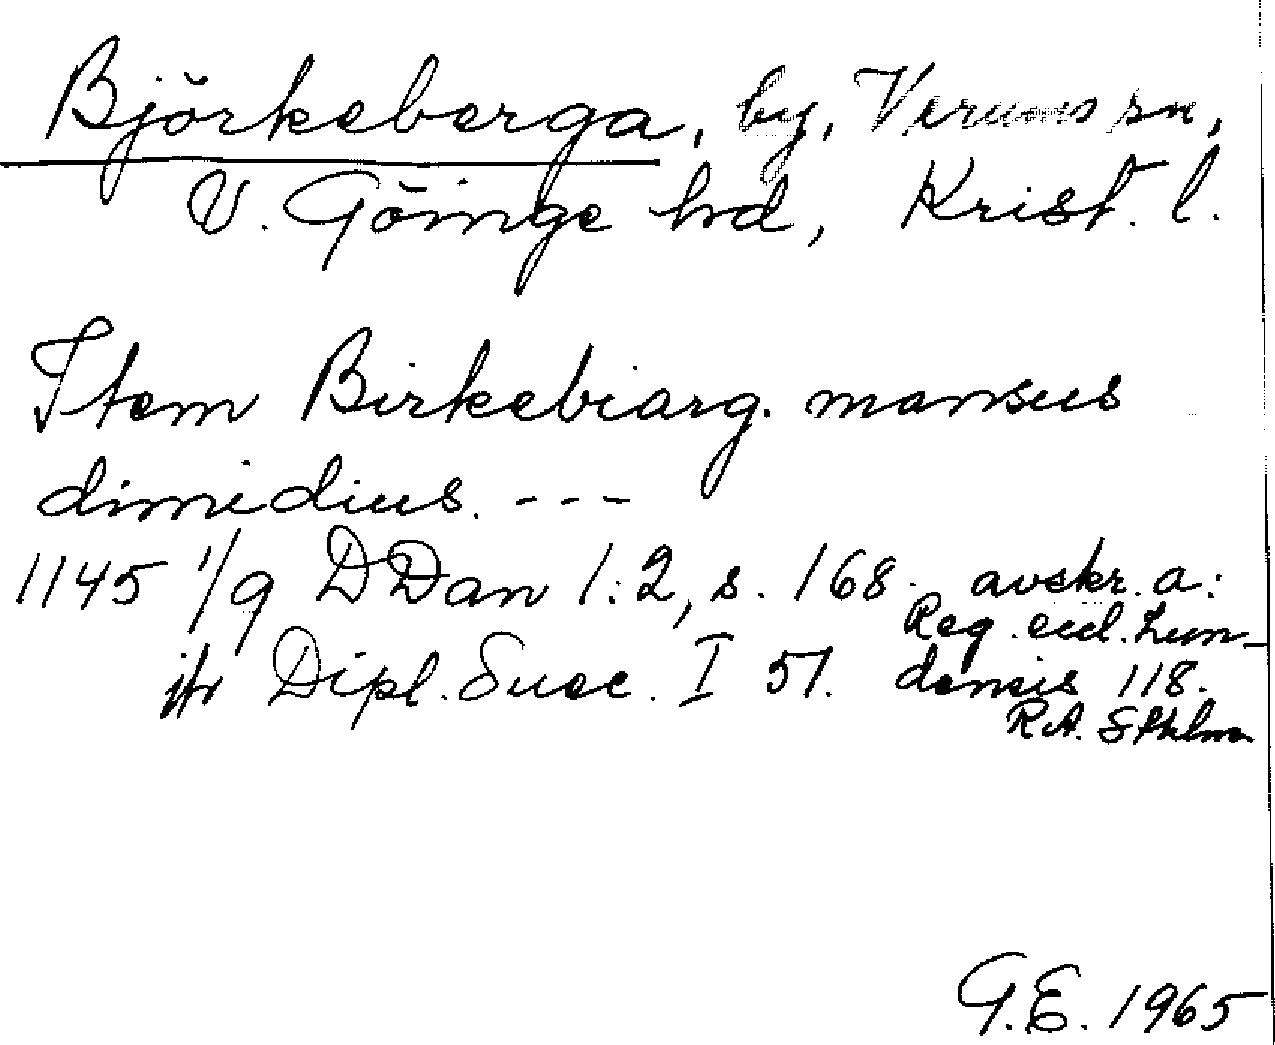 Björkeberga, by, Verums sn,
V. Göinge hd, Krist. l.
Item Birkebiarg. mansus
dimidius. ---
1145 1/9 DDan 1:2, s. 168. avskr. a:
Reg. eccl. Lun-
jfr Dipl. Suec. I 51. densis 118.
RA. Sthlm
G.E. 1965